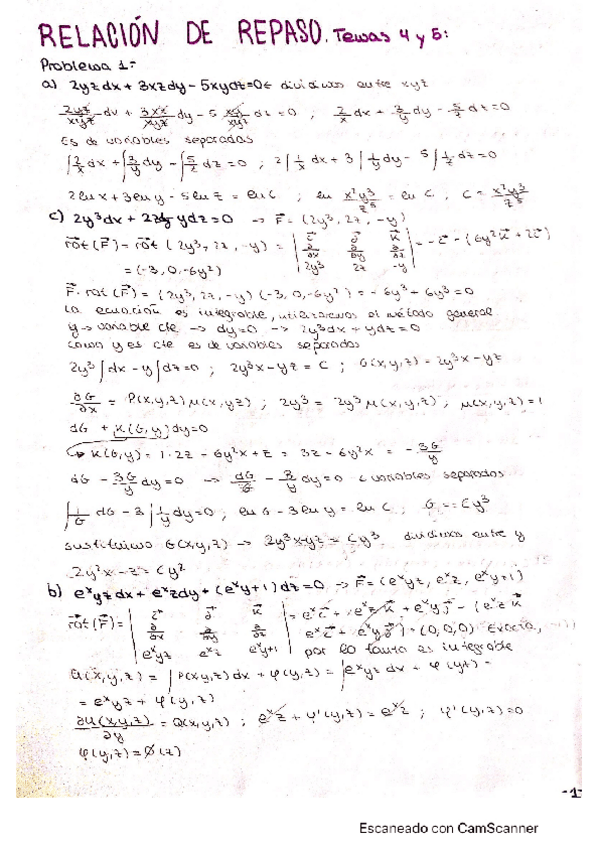 RELACIÓN DE REPASO. Temas 4 y 5:
Problema 1-
a) 2yz dx + 3xz dy - 5xy dz = 0 ← dividimos entre xyz
2yz/xyz dx + 3xz/xyz dy - 5 xy/xyz dz = 0 ; 2/x dx + 3/y dy - 5/z dz = 0
Es de variables separadas
∫2/x dx + ∫3/y dy - ∫5/z dz = 0 ; 2∫1/x dx + 3∫1/y dy - 5∫1/z dz = 0
2 ln x + 3 ln y - 5 ln z = ln C ; ln x²y³/z⁵ = ln C , C = x²y³/z⁵
c) 2y³dx + 2z dy - ydz = 0 → F = (2y³, 2z, -y)
rot(F) = rot (2y³, 2z, -y) = | i j k ∂/∂x ∂/∂y ∂/∂z 2y³ 2z -y | = -i - (6y²k + 2i)
= (-3, 0, -6y²)
F · rot(F) = (2y³, 2z, -y)(-3, 0, -6y²) = -6y³ + 6y³ = 0
La ecuación es integrable, utilizamos el método general
y → variable cte → dy = 0 → 2y³dx + ydz = 0
como y es cte es de variables separadas
2y³∫dx - y∫dz = 0 ; 2y³x - yz = C ; G(x,y,z) = 2y³x - yz
∂G/∂x = P(x,y,z) μ(x,y,z) ; 2y³ = 2y³ μ(x,y,z) ; μ(x,y,z) = 1
dG + K(G,y)dy = 0
↳ K(G,y) = 1·2z - 6y²x + z = 3z - 6y²x = -3G/y
dG - 3G/y dy = 0 → dG/G - 3/y dy = 0 ← variables separadas
∫1/G dG - 3∫1/y dy = 0 ; ln G - 3 ln y = ln C ; G = Cy³
sustituimo G(x,y,z) → 2y³x - yz = Cy³ dividimos entre y
2y²x - z = Cy²
b) eˣyz dx + eˣz dy + (eˣy + 1) dz = 0 → F = (eˣyz, eˣz, eˣy + 1)
rot(F) = | i j k ∂/∂x ∂/∂y ∂/∂z eˣyz eˣz eˣy+1 | = eˣi + eˣz k + eˣy j - (eˣz k
eˣi + eˣy j) = (0,0,0) Exacta,
por lo tanto es integrable
U(x,y,z) = ∫P(x,y,z) dx + φ(y,z) = ∫eˣyz dx + φ(y,z) =
= eˣyz + φ(y,z)
∂U(x,y,z)/∂y = Q(x,y,z) ; eˣz + φ'(y,z) = eˣz ; φ'(y,z) = 0
φ(y,z) = Ø(z)
-1-
Escaneado con CamScanner